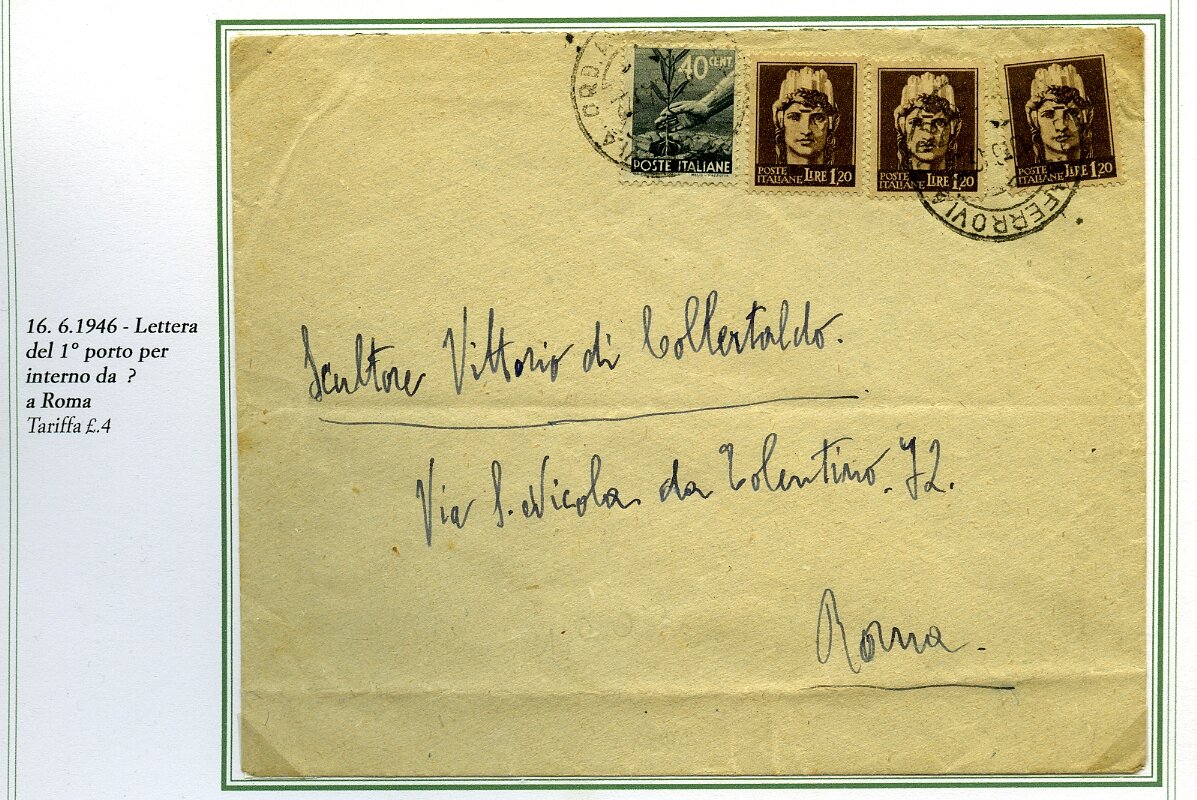 40 CENT.
POSTE ITALIANE
POSTE
ITALIANE LIRE 1,20
POSTE
ITALIANE LIRE 1,20
POSTE
ITALIANE LIRE 1,20
FERROVIA
ORD.
16. 6.1946 - Lettera
del 1° porto per
interno da ?
a Roma
Tariffa £.4
Scultore Vittorio di Collertaldo.
Via S. Nicola da Tolentino. 72.
Roma.